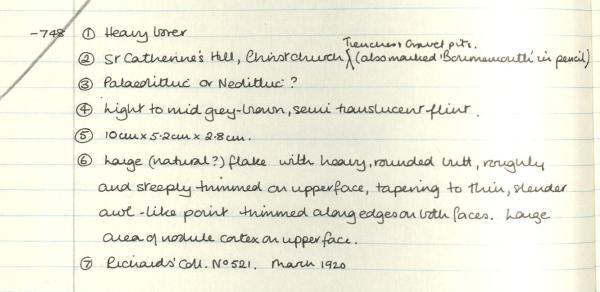 -748 ① Heavy borer
Trenches & Gravel pits.
② St Catherine's Hill, Christchurch (also marked 'Bournemouth' in pencil)
③ Palaeolithic or Neolithic?
④ Light to mid grey-brown, semi translucent flint.
⑤ 10cm x 5.2cm x 2.8cm.
⑥ Large (natural?) flake with heavy, rounded butt, roughly
and steeply trimmed on upperface, tapering to thin, slender
awl-like point trimmed along edges on both faces. Large
area of nodule cortex on upper face.
⑦ Richards' Coll. No 521. March 1920